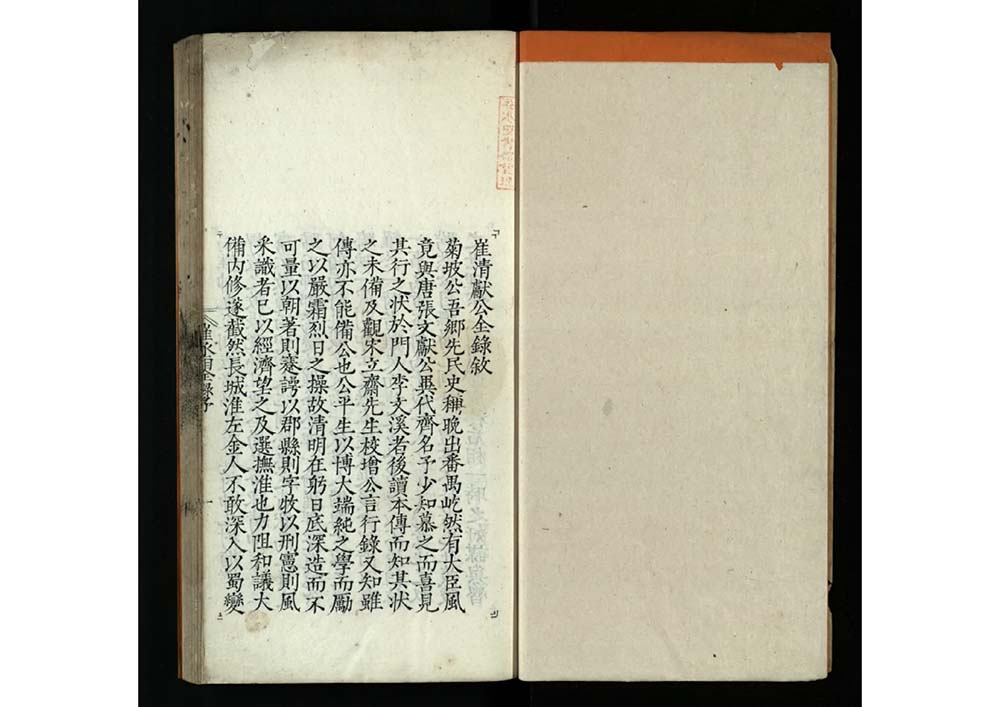 崔清獻公全錄敘
菊坡公吾鄉先民史稱晚出番禺屹然有大臣風
竟與唐張文獻公異代齊名予少知慕之而喜見
其行之状於門人李文溪者後讀本傳而知其状
之未備及觀宋立齋先生校增公言行錄又知雖
傳亦不能備公也公平生以博大端純之學而勵
之以嚴霜烈日之操故清明在躬日底深造而不
可量以朝著則蹇諤以郡縣則字牧以刑憲則風
釆識者已以經濟望之及選撫淮也力阻和議大
備内修遂截然長城淮左金人不敢深入以蜀變